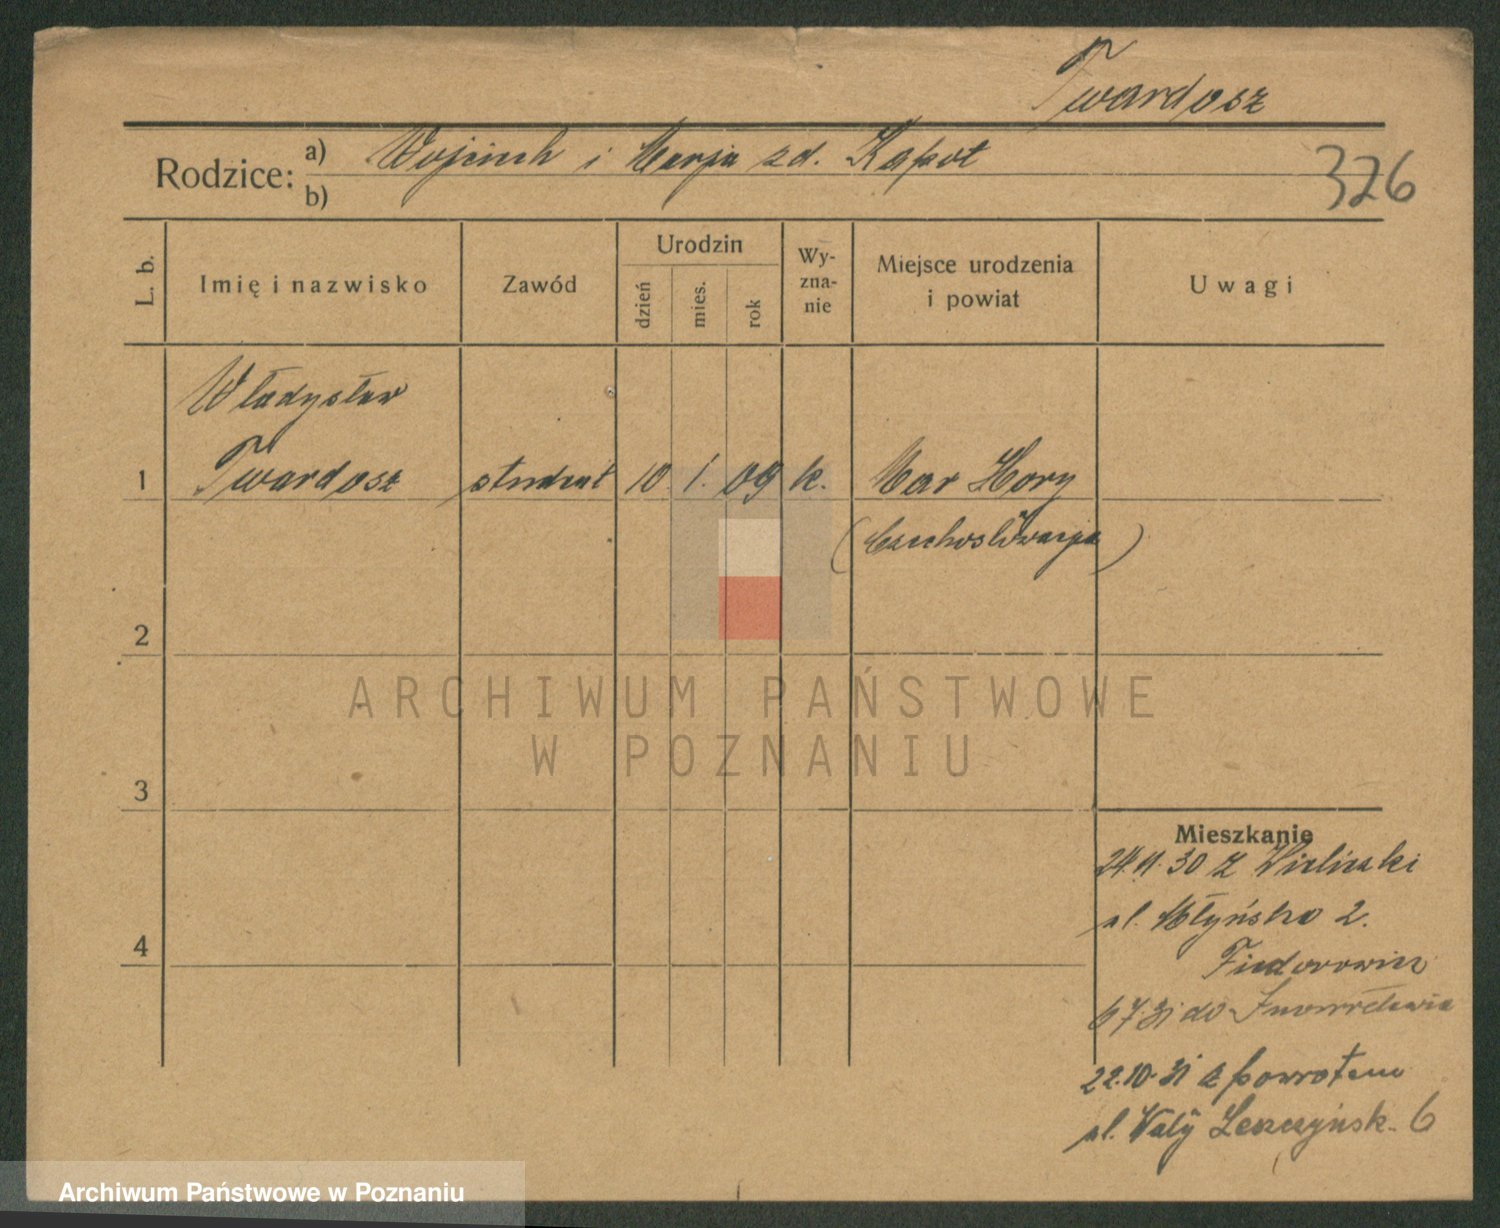 Twardosz
Rodzice:
a) Wojciech i Marja zd. Kapot
b)
326
L. b.
Imię i nazwisko
Zawód
Urodzin
dzień
mies.
rok
Wy-
zna-
nie
Miejsce urodzenia
i powiat
Uwagi
Władysław
1 Twardosz student 10 1. 09 k. Mar Hory
(Czechosłowacja)
2
ARCHIWUM PAŃSTWOWE
W POZNANIU
3
Mieszkanie
24.11.30 z Wieliczki
ul. Młyńska 2.
4
Fiedorowicz
6 7.31 do Inowrocławia
22.10.31 z powrotem
ul. Wały Leszczyńsk. 6
Archiwum Państwowe w Poznaniu